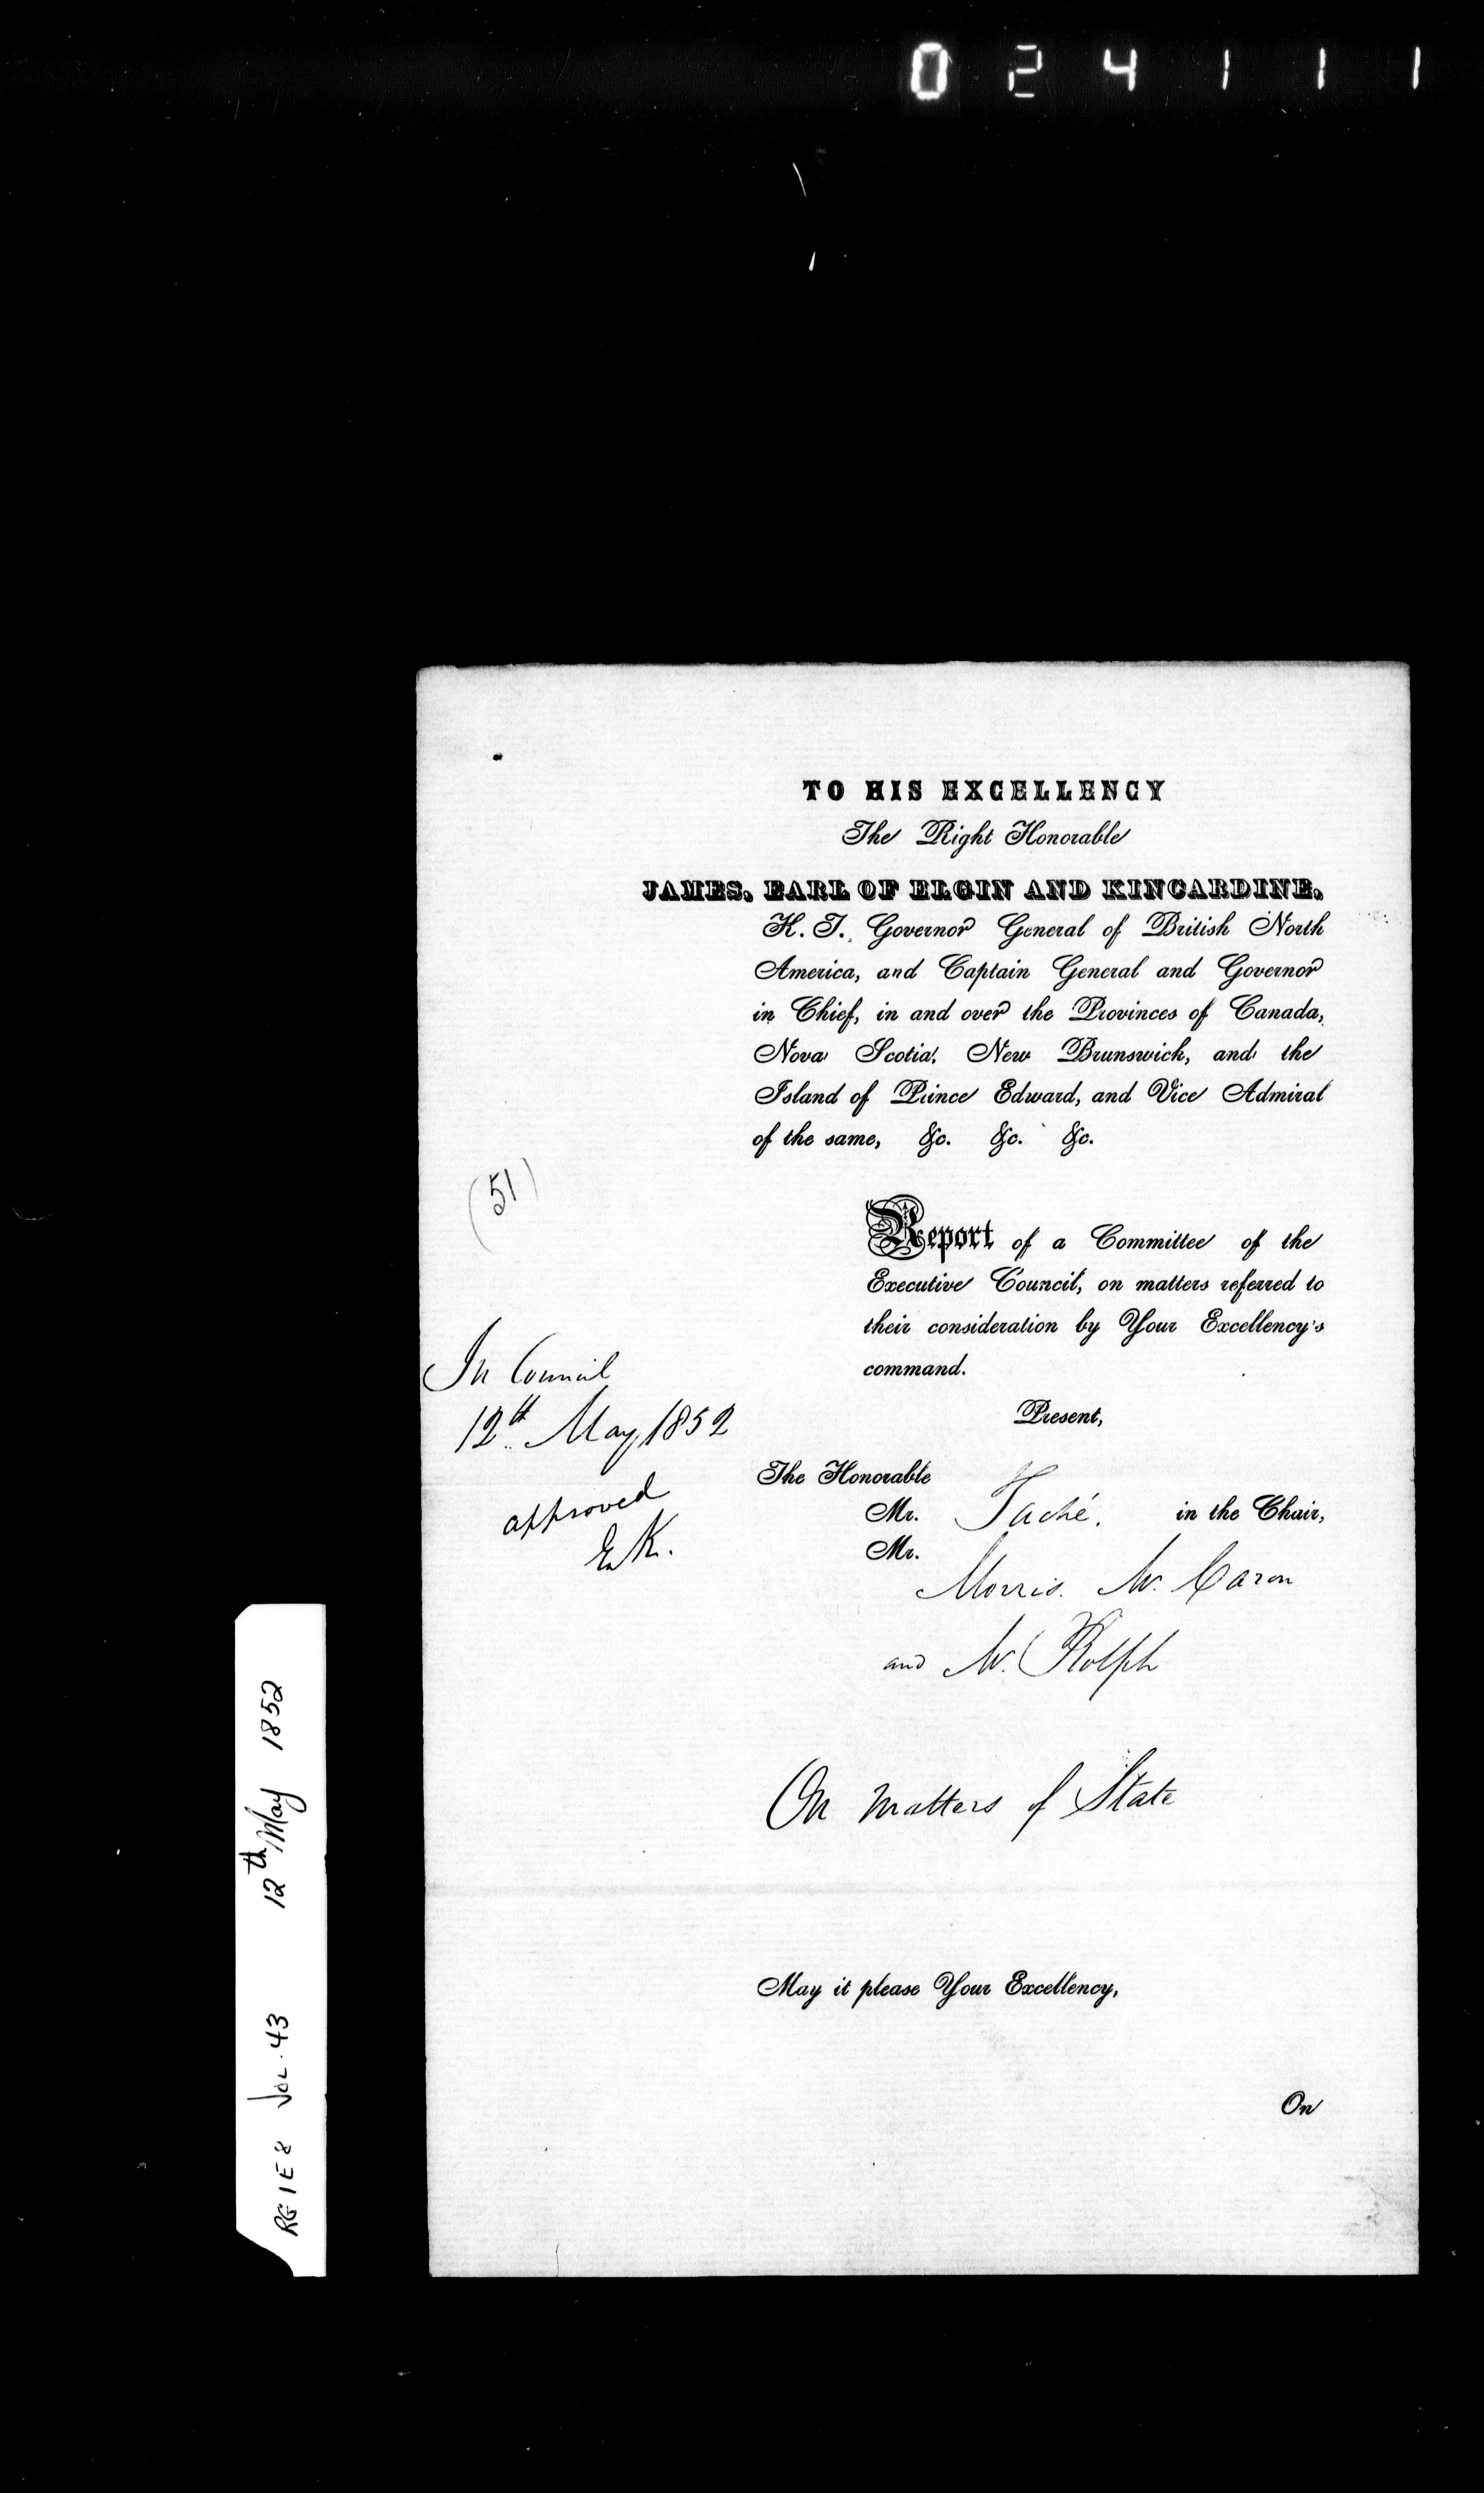 0 2 4 1 1 1
TO HIS EXCELLENCY
The Right Honorable
JAMES, EARL OF ELGIN AND KINCARDINE,
K. T., Governor General of British North
America, and Captain General and Governor
in Chief, in and over the Provinces of Canada,
Nova Scotia, New Brunswick, and the
Island of Prince Edward, and Vice Admiral
of the same, &c. &c. &c.
(51)
Report of a Committee of the
Executive Council, on matters referred to
their consideration by Your Excellency's
command.
In Council
12th May 1852
approved
E K.
Present,
The Honorable
Mr. Taché. in the Chair,
Mr.
Morris. Mr. Caron
and Mr. Rolph
On matters of State
May it please Your Excellency,
On
RG 1 E 8 Vol. 43 12th May 1852